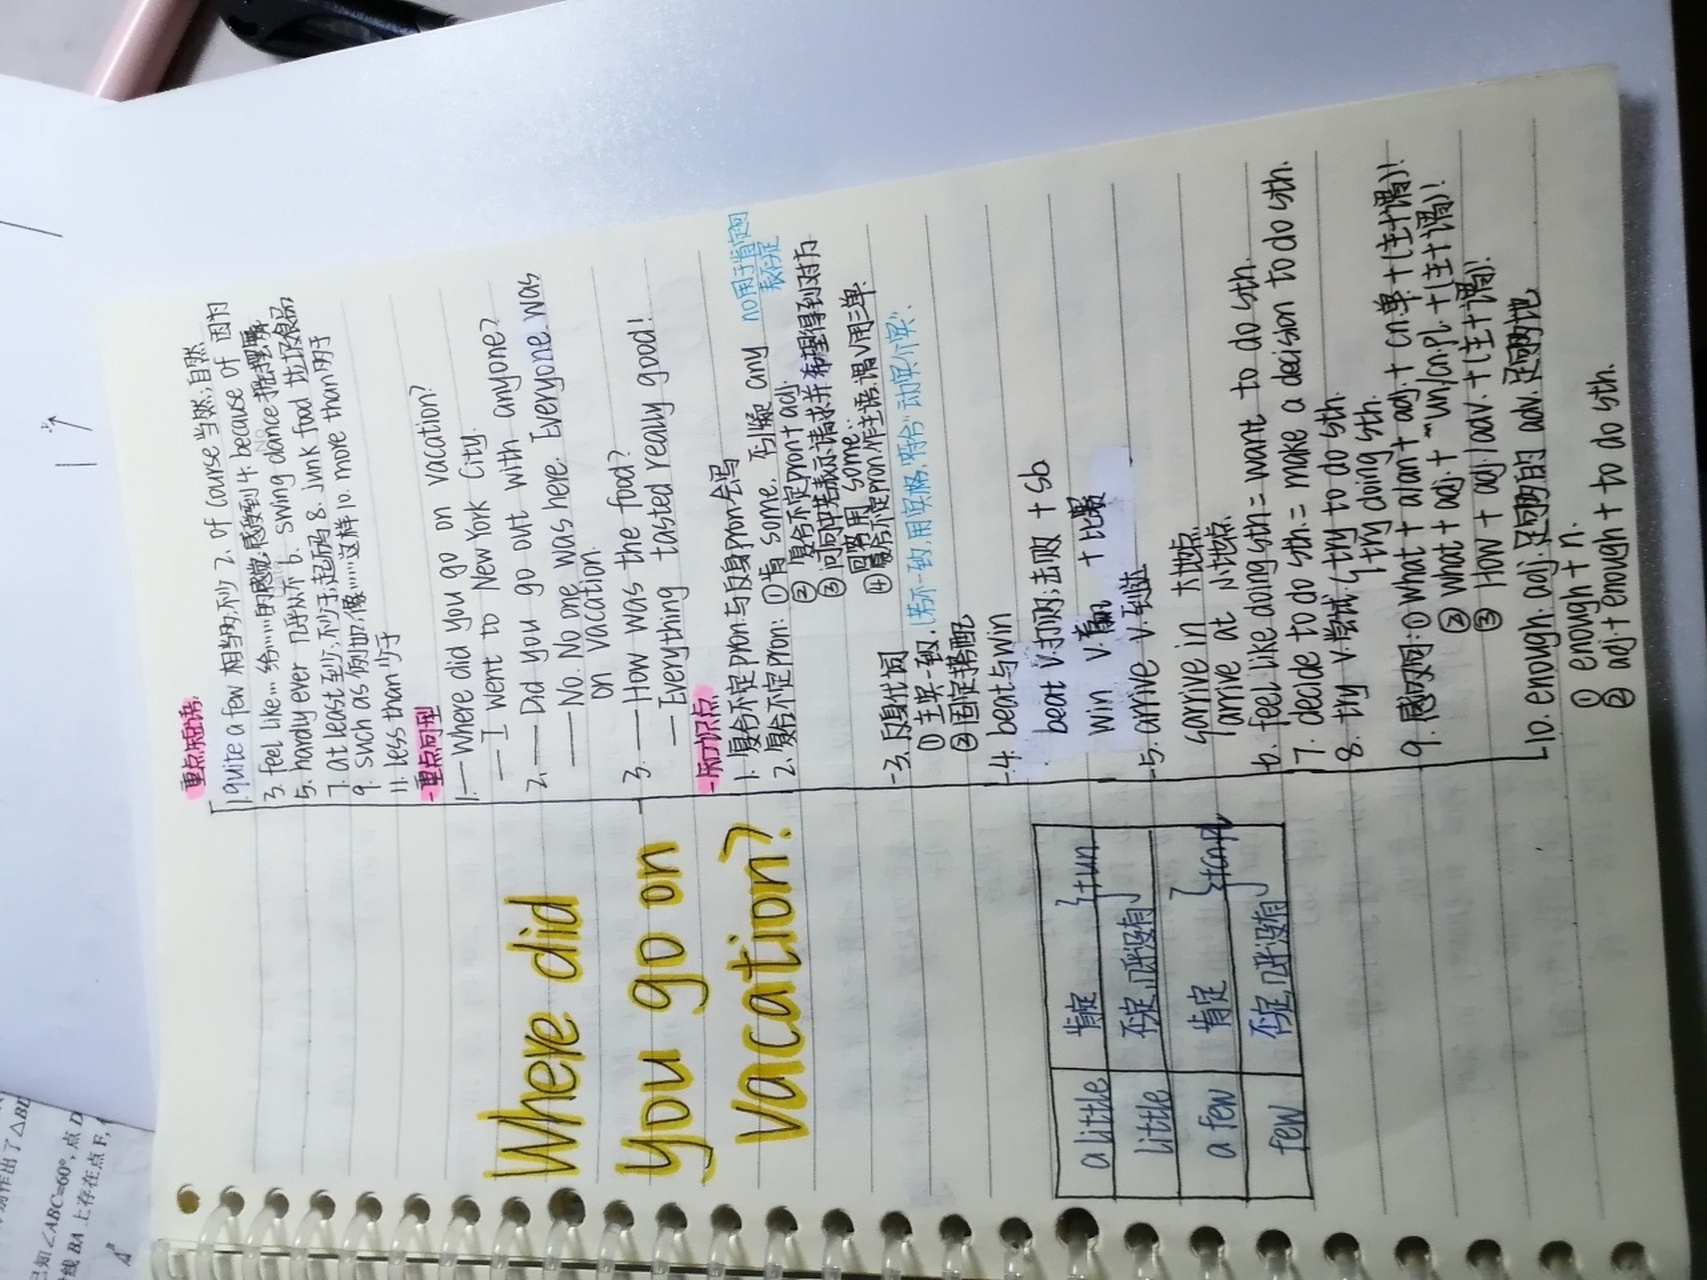 Where did
you go on
vacation?
a little 肯定 }+un
little 否定,几乎没有
a few 肯定 }+cn.pl
few 否定,几乎没有
重点短语
1. quite a few 相当多;不少 2. of course 当然;自然
3. feel like... 给……的感觉;感受到 4. because of 因为
5. hardly ever 几乎从不 6. swing dance 摇摆舞
7. at least 至少;不少于;起码 8. junk food 垃圾食品
9. such as 例如;像……这样 10. more than 多于
11. less than 少于
重点句型
1. — Where did you go on vacation?
— I went to New York City.
2. — Did you go out with anyone?
— No. No one was here. Everyone was
on vacation.
3. — How was the food?
— Everything tasted really good!
知识点
1. 复合不定pron.与反身pron.会写
2. 复合不定pron: ①肯 some, 否,疑 any no用于肯定句
表否定
②复合不定pron+adj
③问句中若表示请求并希望得到对方
回答用 some.
④复合不定pron.作主语,谓v用三单
3. 反身代词
①主宾一致.(若不一致,用宾格,
②固定搭配
4. beat与win
beat v.打败;击败 + sb
win v.赢 +比赛
5. arrive v.到达
{arrive in 大地点
arrive at 小地点
6. feel like doing sth = want to do sth.
7. decide to do sth = make a decision to do sth.
8. try v.尝试 { try to do sth.
try doing sth.
9. 感叹句: ① what + a/an + adj. + cn单 + (主+谓)!
② what + adj. + un/cn.pl. + (主+谓)!
③ How + adj/adv. + (主+谓)!
10. enough adj.足够的 adv.足够地
① enough + n.
② adj + enough + to do sth.